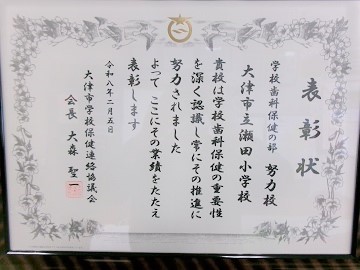 表彰状
学校歯科保健の部 努力校
大津市立瀬田小学校
貴校は学校歯科保健の重要性
を深く認識し常にその推進に
努力されました
よって ここにその業績をたたえ
表彰します
令和八年二月五日
大津市学校保健連絡協議会
会長 大森 聖一